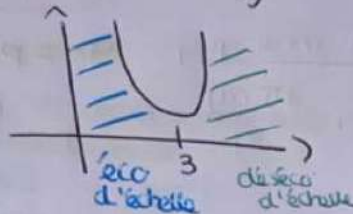 3
éco
d'échelle
déséco
d'échelle